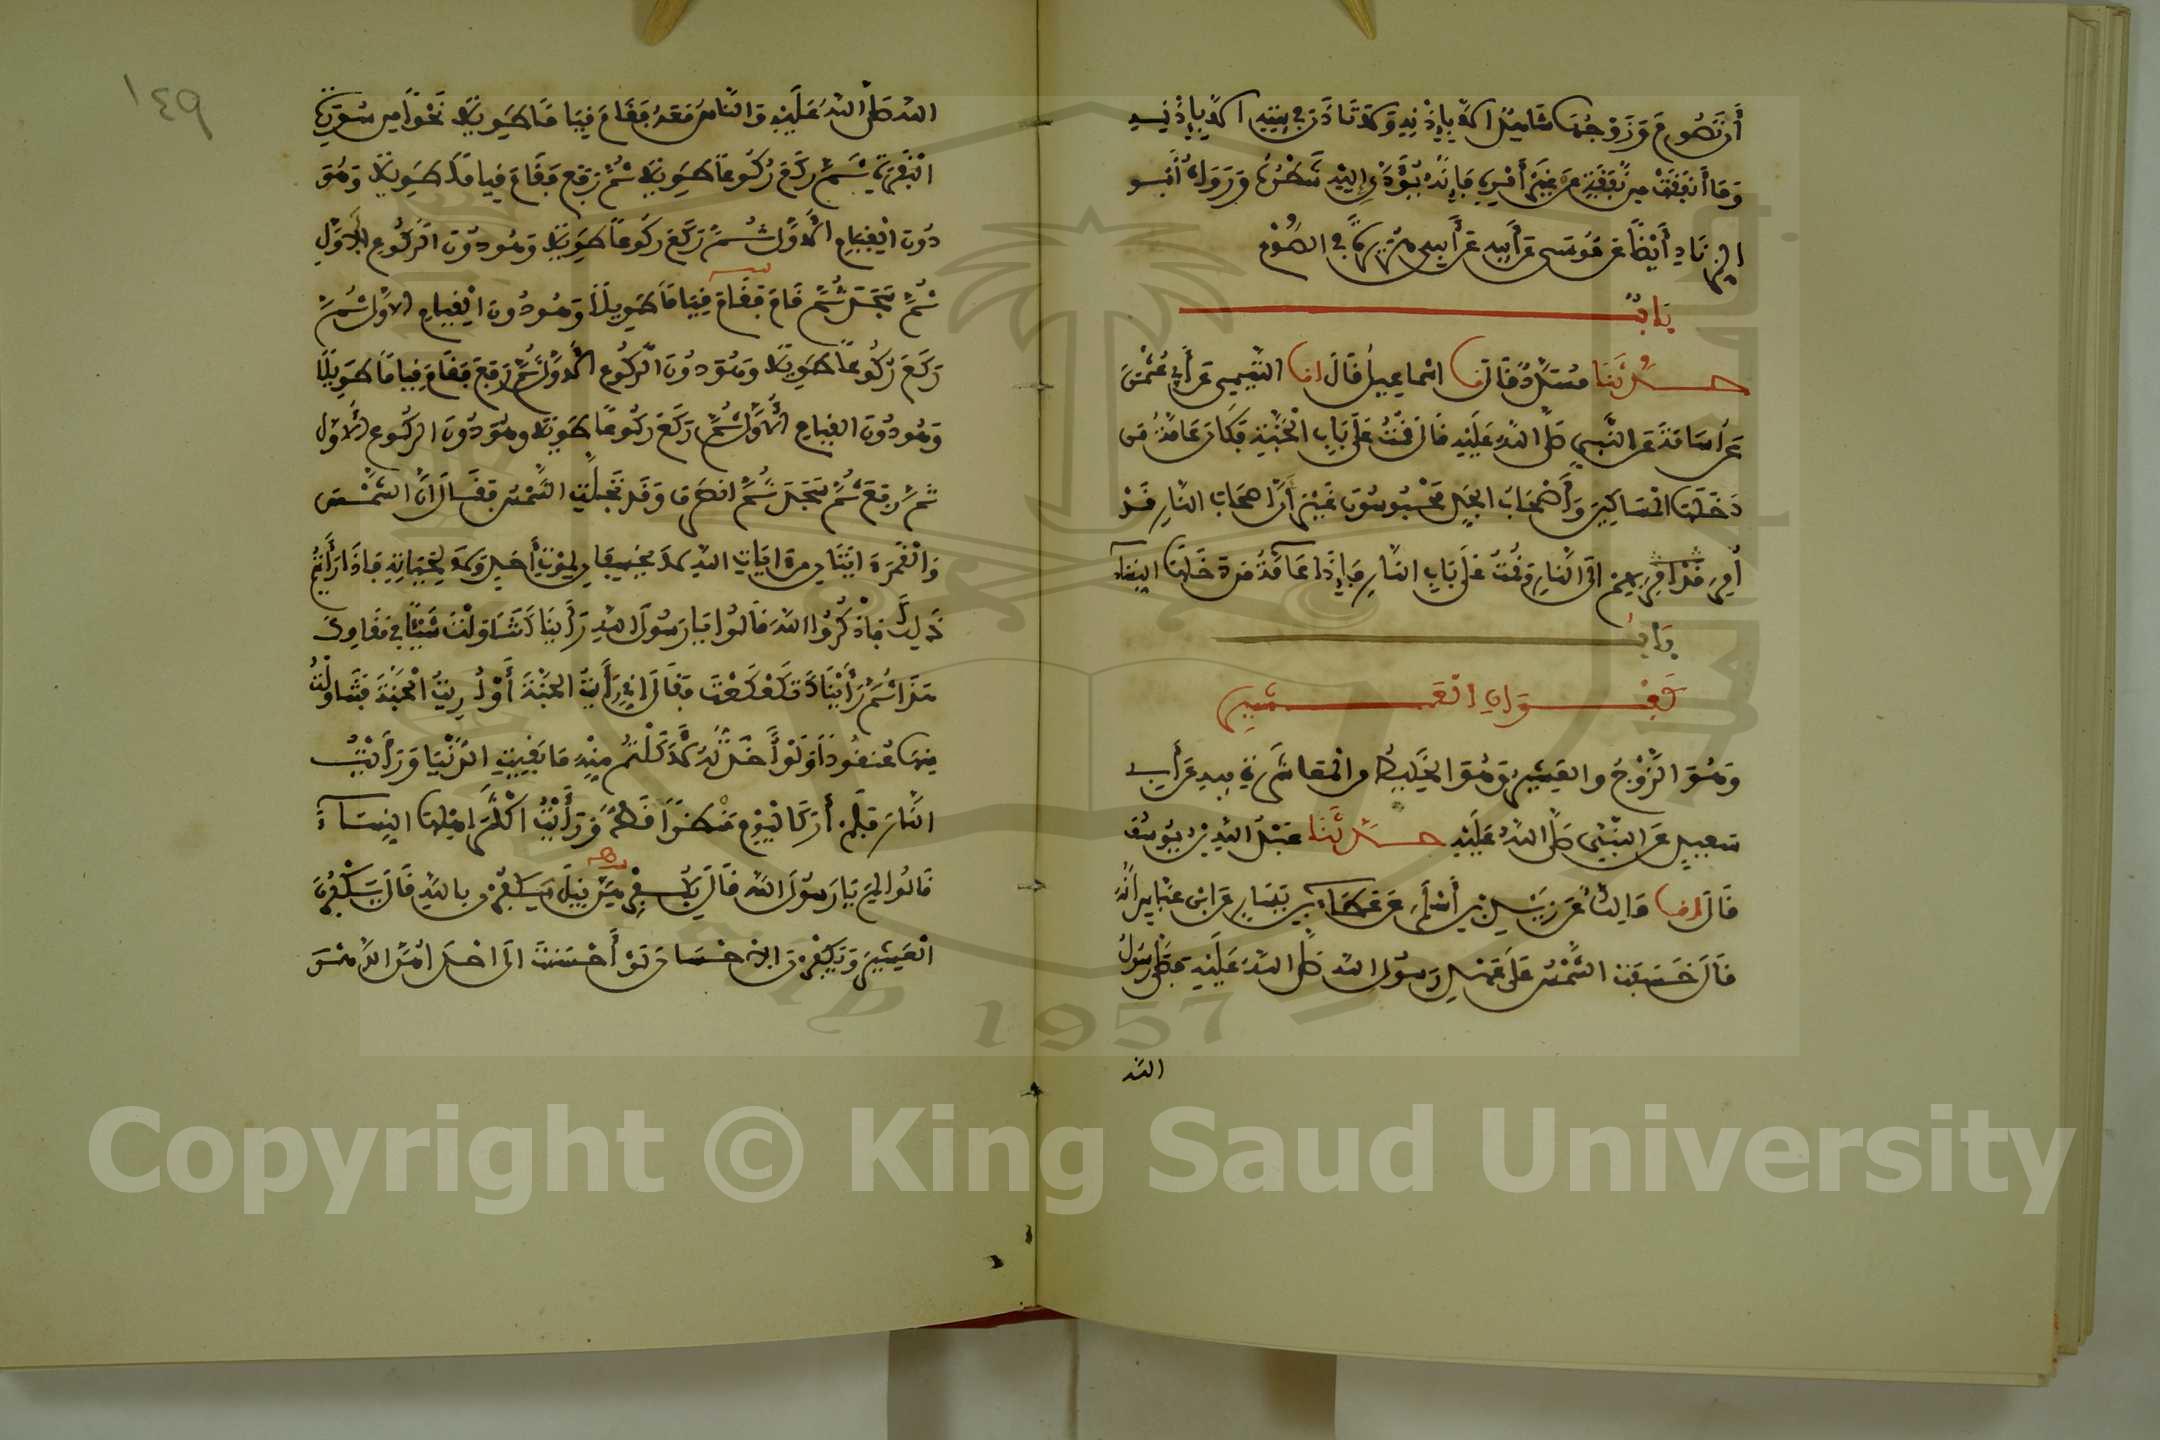 أَن تَصُومَ وَزَوْجُهَا شَاهِدٌ اِلَّا بِإِذْنِهِ وَلَا تَاذَنَ فِي بَيْتِهِ اِلَّا بِإِذْنِهِ
وَمَا أَنفَقَتْ مِن نَّفَقَةٍ عَن غَيْرِ أَمْرِهِ فَإِنَّهُ يُؤَدَّى إِلَيْهِ شَطْرُهُ وَرَوَاهُ أَبُو
الزِّنَادِ أَيْضاً عَن مُوسَى عَن أَبِيهِ عَن أَبِي هُرَيْرَةَ فِي الصَّوْمِ
بَابٌ
حَدَّثَنَا مُسَدَّدٌ قَالَ نا اسْمَاعِيلُ قَالَ انا التَّيْمِي عَن أَبِي عُثْمَنَ
عَن اُسَامَةَ عَن النَّبِيِّ صَلَّى اللهُ عَلَيْهِ قَالَ قُمْتُ عَلَى بَابِ الْجَنَّةِ فَكَانَ عَامَّةُ مَن
دَخَلَهَا الْمَسَاكِينَ وَأَصْحَابُ الْجَدِّ مَحْبُوسُونَ غَيْرَ أَنَّ اصْحَابَ النَّارِ قَدْ
اُمِرَ بِهِمْ الَى النَّارِ وَقُمْتُ عَلَى بَابِ النَّارِ فَإِذَا عَامَّةُ مَن دَخَلَهَا النِّسَاءُ
بَابُ
كُفْرَانِ الْعَشِيرِ
وَهُوَ الزَّوْجُ وَالعَشِيرُ وَهُوَ الخَلِيطُ مِنَ الْمُعَاشَرَةِ فِيهِ عَن أَبِي
سَعِيدٍ عَن النَّبِيِّ صَلَّى اللهُ عَلَيْهِ حَدَّثَنَا عَبْدُ اللهِ بْنُ يُوسُفَ
قَالَ انا مَالِكٌ عَن زَيْدِ بْنِ أَسْلَمَ عَن عَطَاءِ بْنِ يَسَارٍ عَن ابْنِ عَبَّاسٍ أَنَّهُ
قَالَ خَسَفَتِ الشَّمْسُ عَلَى عَهْدِ رَسُولِ اللهِ صَلَّى اللهُ عَلَيْهِ فَصَلَّى رَسُولُ
الله
١٤٩
اللهِ صَلَّى اللهُ عَلَيْهِ وَالنَّاسُ مَعَهُ فَقَامَ قِيَاماً طَوِيلاً نَحْواً مِن سُورَةِ
الْبَقَرَةِ ثُمَّ رَكَعَ رُكُوعاً طَوِيلاً ثُمَّ رَفَعَ فَقَامَ قِيَاماً طَوِيلاً وَهُوَ
دُونَ الْقِيَامِ الْأَوَّلِ ثُمَّ رَكَعَ رُكُوعاً طَوِيلاً وَهُوَ دُونَ الرُّكُوعِ الْأَوَّلِ
ثُمَّ سَجَدَ ثُمَّ قَامَ فَقَامَ قِيَاماً طَوِيلاً وَهُوَ دُونَ الْقِيَامِ الْأَوَّلِ ثُمَّ
رَكَعَ رُكُوعاً طَوِيلاً وَهُوَ دُونَ الرُّكُوعِ الْأَوَّلِ ثُمَّ رَفَعَ فَقَامَ قِيَاماً طَوِيلاً
وَهُوَ دُونَ القِيَامِ الْأَوَّلِ ثُمَّ رَكَعَ رُكُوعاً طَوِيلاً وهُوَ دُونَ الرُّكُوعِ الْأَوَّلِ
ثُمَّ رَفَعَ ثُمَّ سَجَدَ ثُمَّ انصَرَفَ وَقَد تَّجَلَّتِ الشَّمْسُ فَقَالَ انَّ الشَّمْسَ
وَالْقَمَرَ ايَتَانِ مِن ايَاتِ اللهِ لَا يَخْسِفَانِ لِمَوْتِ أَحَدٍ وَلَا لِحَيَاتِهِ فَإذَا رَأَيْتُمْ
ذَلِكَ فَاذْكُرُوا اللهَ قَالُوا يَا رَسُولَ اللهِ رَأَيْنَاكَ تَنَاوَلْتَ شَيْئاً فِي مَقَامِكَ
هَذَا ثُمَّ رَأَيْنَاكَ تَكَعْكَعْتَ فَقَالَ انِّي رَأَيْتُ الجَنَّةَ أَوْ أُرِيتُ الْجَنَّةَ فَتَنَاوَلْتُ
مِنْهَا عُنقُوداً وَلَوْ أَخَذْتُهُ لَأَكَلْتُمْ مِنْهُ مَا بَقِيَتِ الدُّنْيَا وَرَأَيْتُ
النَّارَ فَلَمْ أَرَ كَالْيَوْمِ مَنْظَراً قَطُّ وَرَأَيْتُ اكْثَرَ اهْلِهَا النِّسَاءَ
قَالُوا لِمَ يَا رَسُولَ اللهِ قَالَ بِكُفْرِهِنَّ قِيلَ يَكْفُرْنَ بِاللهِ قَالَ يَكْفُرْنَ
الْعَشِيرَ وَيَكْفُرْنَ الاِحْسَانَ لَوْ أَحْسَنتَ الَى احْدَاهُنَّ الدَّهْرَ
1957
Copyright © King Saud University